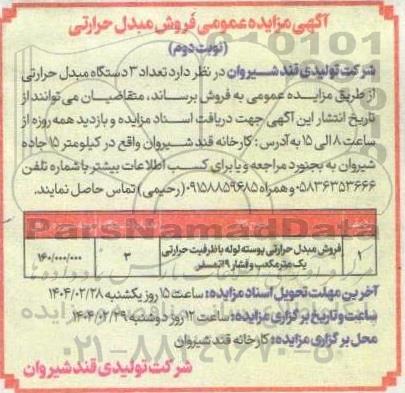 آگهی مزایده عمومی فروش مبدل حرارتی
(نوبت دوم)
شرکت تولیدی قند شیروان در نظر دارد تعداد ۳ دستگاه مبدل حرارتی
از طریق مزایده عمومی به فروش برساند، متقاضیان می توانند از
تاریخ انتشار این آگهی جهت دریافت اسناد مزایده و بازدید همه روزه از
ساعت ۸ الی ۱۵ به آدرس : کارخانه قند شیروان واقع در کیلومتر ۱۵ جاده
شیروان به بجنورد مراجعه و یا برای کسب اطلاعات بیشتر با شماره تلفن
۰۵۸۳۶۳۵۳۶۶۶ و همراه ۰۹۱۵۸۸۵۹۶۸۵ (رحیمی) تماس حاصل نمایند.
۱ فروش مبدل حرارتی پوسته لوله با ظرفیت حرارتی یک مترمکعب و فشار ۹ اتمسفر ۳ ۱۶۰/۰۰۰/۰۰۰
آخرین مهلت تحویل اسناد مزایده: ساعت ۱۵ روز یکشنبه ۱۴۰۴/۰۲/۲۸
ساعت و تاریخ برگزاری مزایده: ساعت ۱۲ روز دوشنبه ۱۴۰۴/۰۲/۲۹
محل برگزاری مزایده: کارخانه قند شیروان
شرکت تولیدی قند شیروان
ParsNamadData
۰۲۱-۸۸۳۴۹۶۷۰-۵